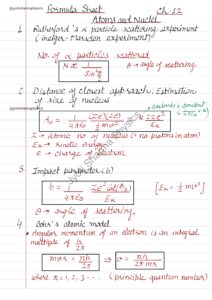 Formula Sheet
Ch-12
Atoms and Nuclei
1. Rutherford's α particle scattering experiment
(Geiger-Marsden experiment)
No. of α particles scattered
N ∝ 1/sin⁴ θ/2
θ → angle of scattering.
2. Distance of closest approach: Estimation
of size of nucleus
r₀ = 1/4πε₀ (Ze)(2e)/½mv²
z → atomic no of nucleus (= no. protons in atom)
Eₖ → Kinetic energy
e → charge of electron
3. Impact parameter (b)
[Eₖ = ½ mv²]
θ → angle of scattering.
4. Bohr's atomic model
• Angular momentum of an electron is an integral
multiple of h/2π
mvr = nh/2π ⇒ v = nh/2πmr
where n = 1, 2, 3 - - - (principle quantum number)